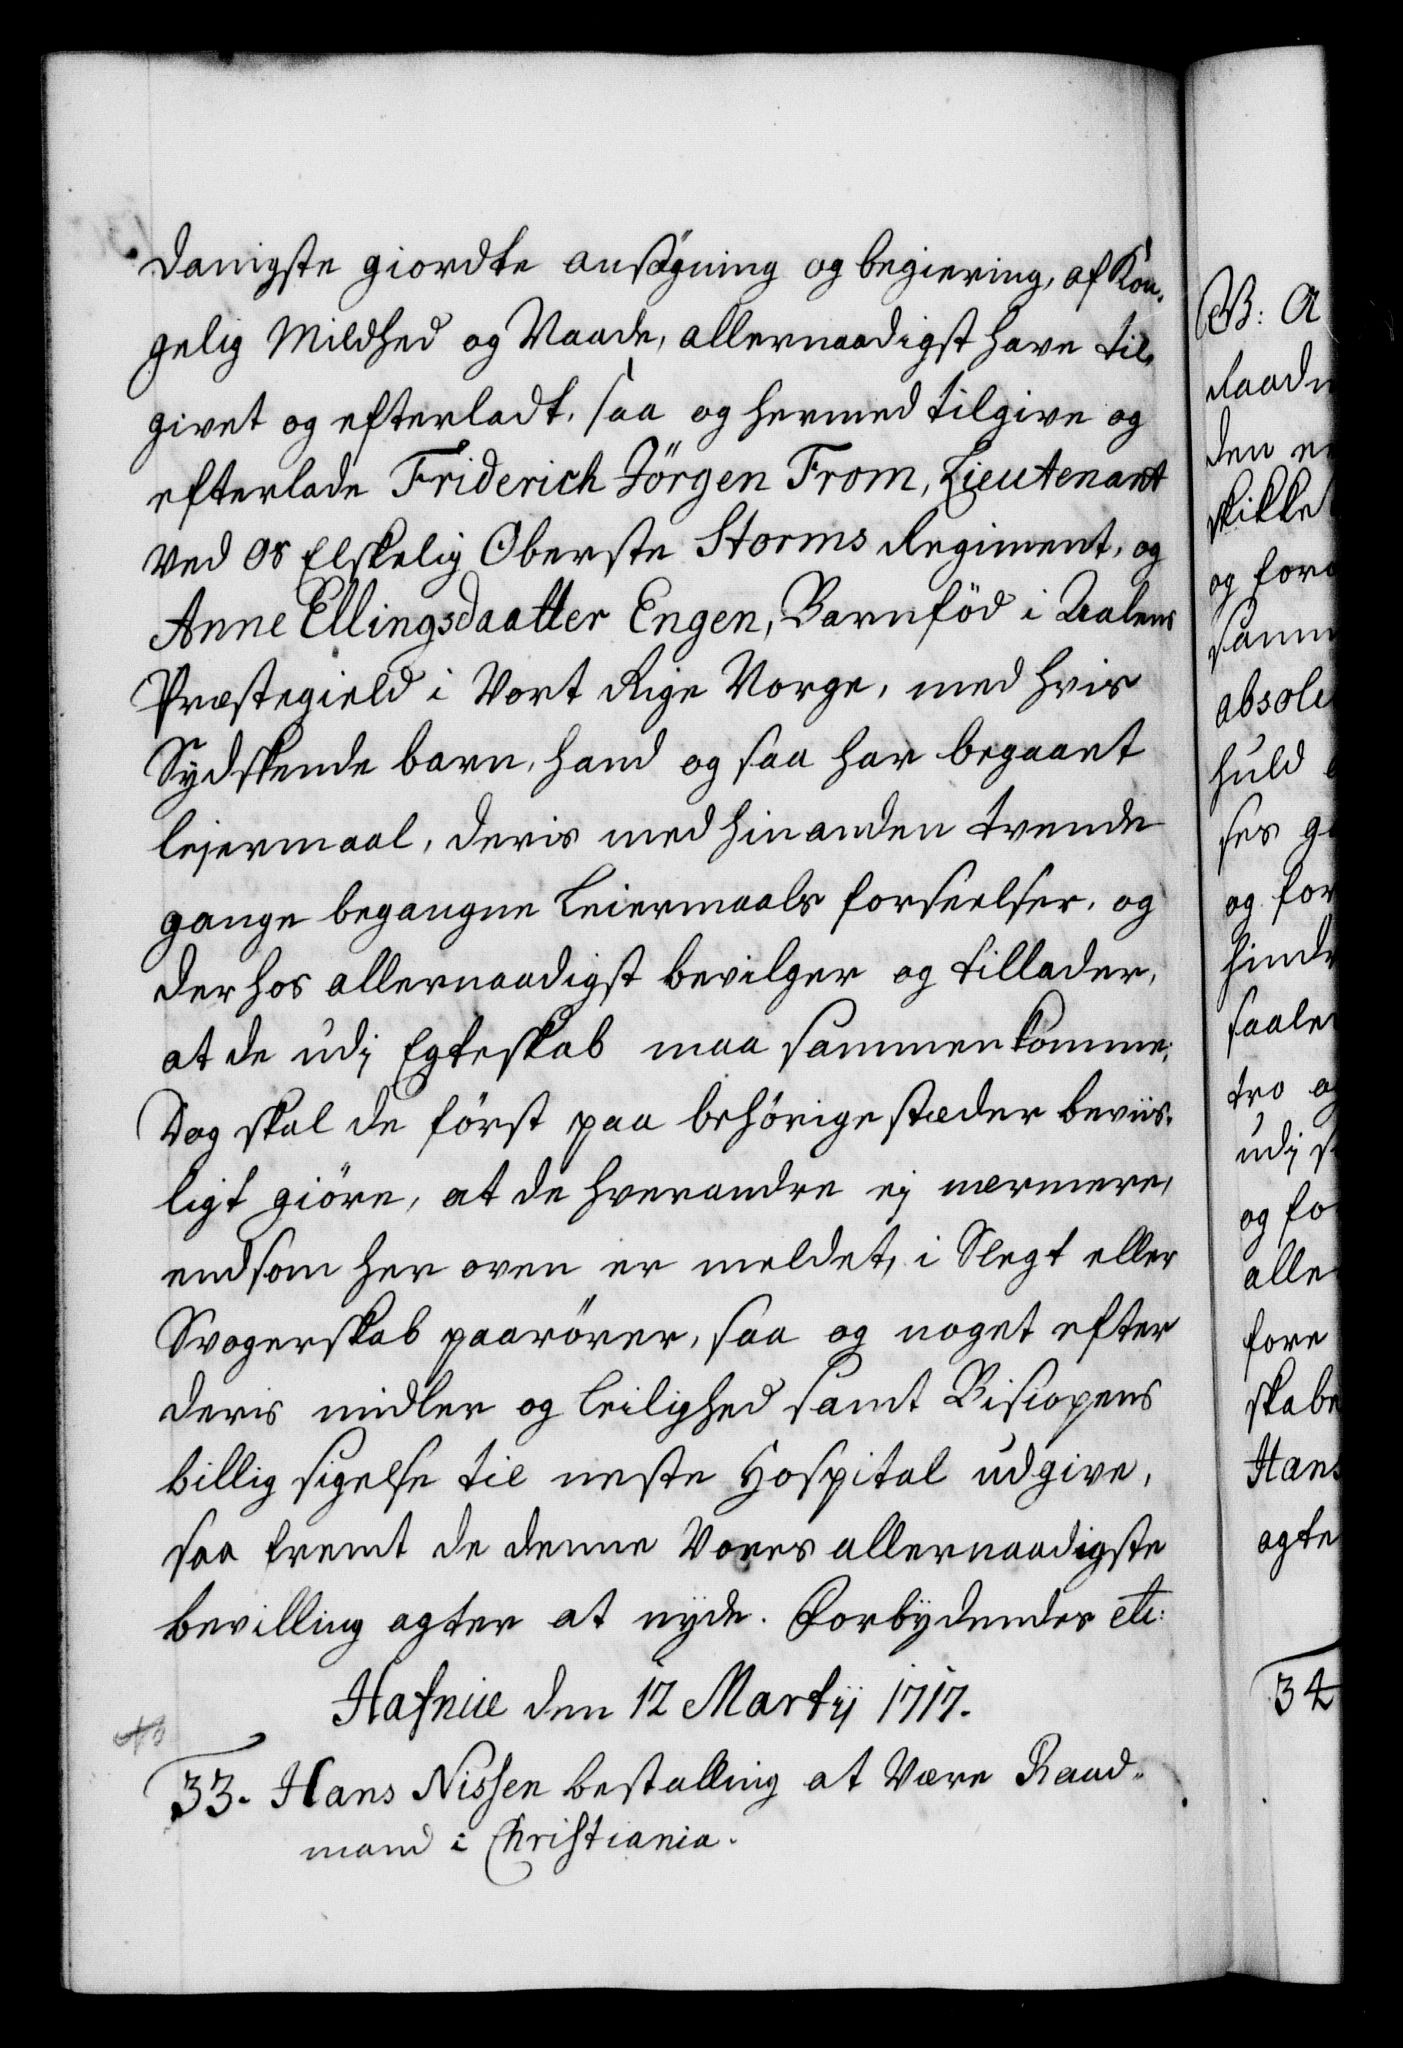 danigste giordte ansøgning og begiering, af Kon-
gelig Mildhed og Naade, allernaadigst have til-
givet og efterladt, saa og hermed tilgive og
efterlade Friderich Jörgen From, Lieutenant
ved os Elskelig Oberste Storms Regiment, og
Anne Ellingsdaatter Engen, Barnföd i Aalens
Præstegield i Vort Rige Norge, med hvis
Sydskende barn, hand og saa har begaaet
lejermaal, deris med hinanden tvende
gange begangne Leiermaals forseelser, og
der hos allernaadigst bevilger og tillader,
at de udj Egteskab maa sammenkomme;
Dog skal de först paa behörige stæder beviis-
ligt giöre, at de hverandre ej nærmere,
end som her oven er meldet, i Slegt eller
Svogerskab paarörer, saa og noget efter
deris midler og leilighed samt Bisiopens
billig sigelse til neste Hospital udgive,
saa fremt de denne Vores allernaadigste
bevilling agter at nyde. Forbydendes etc:
Hafniæ den 12 Martij 1717.
No
33. Hans Nissen bestalling at være Raad-
mand i Christiania.
B: A
Raad
den
skikke
og for
samm
absol
huld
ses g
og for
hind
saale
tro og
udj s
og fo
alle
fore
skabe
Hans
agte
34